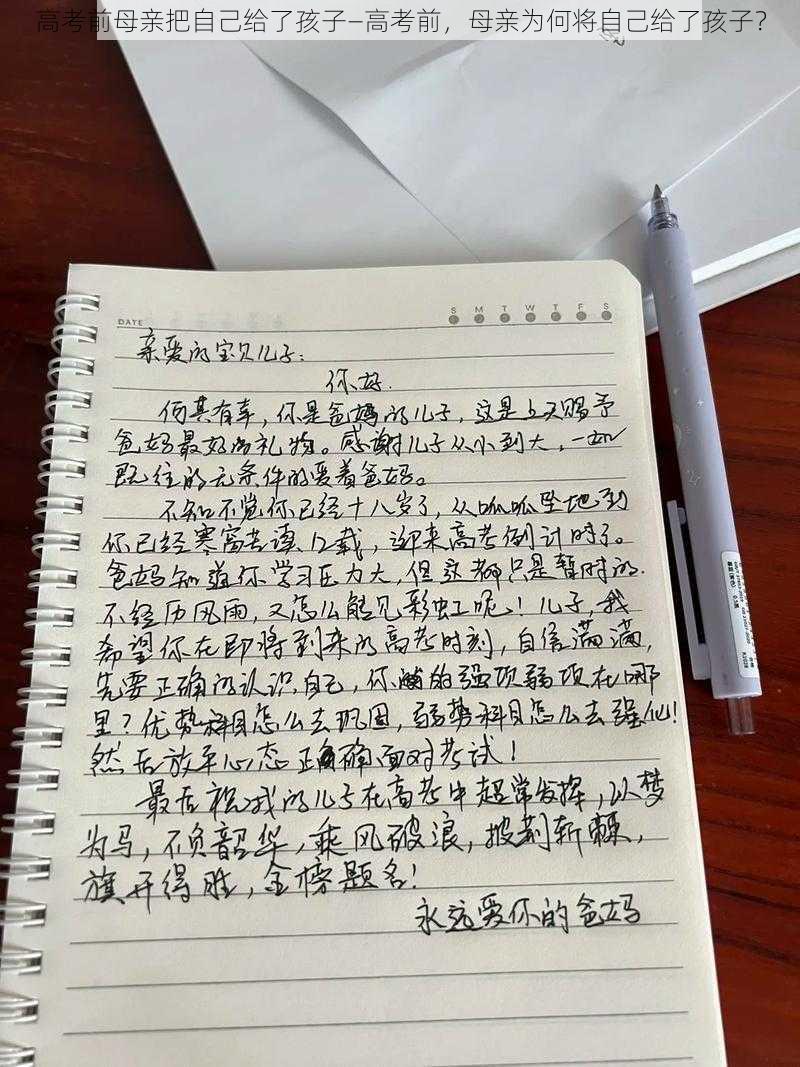 高考前母亲把自己给了孩子–高考前，母亲为何将自己给了孩子？
DATE
S M T W T F S
亲爱的宝贝儿子：
你好.
何其有幸，你是爸妈的儿子，这是上天赐予
爸妈最好的礼物。感谢儿子从小到大，一如
既往的无条件的爱着爸妈。
不知不觉你已经十八岁了，从呱呱坠地到
你已经寒窗苦读12载，迎来高考倒计时了。
爸妈知道你学习压力大，但这都只是暂时的.
不经历风雨，又怎么能见彩虹呢！儿子，我
希望你在即将到来的高考时刻，自信满满，
先要正确的认识自己，你的强项弱项在哪
里？优势科目怎么去巩固，弱势科目怎么去强化！
然后放平心态正确面对考试！
最后祝我的儿子在高考中超常发挥，以梦
为马，不负韶华，乘风破浪，披荆斩棘，
旗开得胜，金榜题名！
永远爱你的爸妈